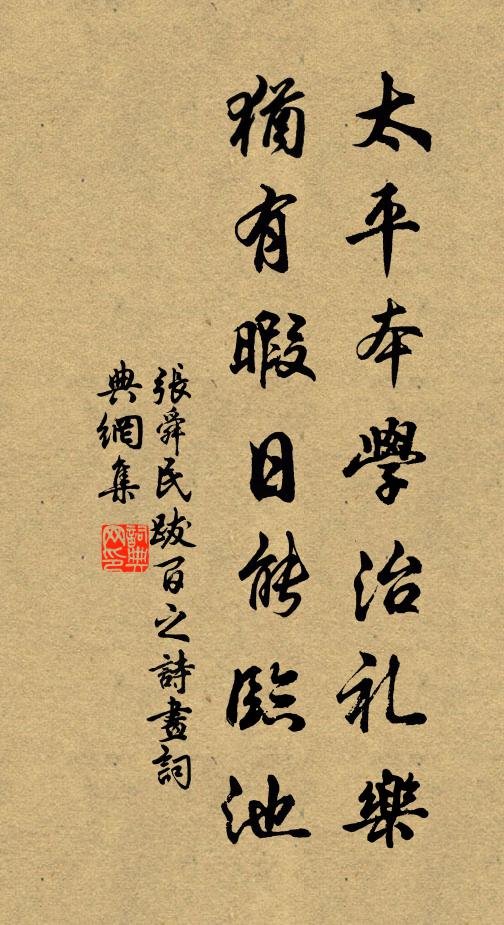 太平本學治礼樂
猶有暇日能臨池
張舜民跋百之詩畫詞
典網集
詞典
网印